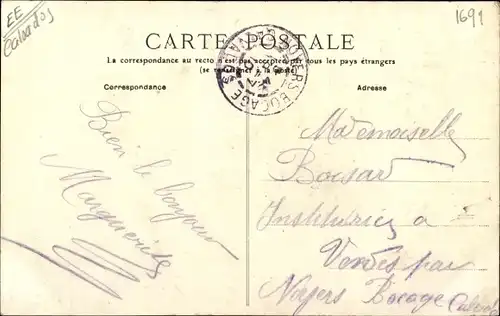 EE
Calvados
1691
CARTE POSTALE
La correspondance au recto n'est pas acceptée par tous les pays étrangers
(se renseigner à la poste)
NOYERS BOCAGE
CALVADOS
Correspondance
Adresse
Bien le bonjour
Marguerite
Mademoiselle
Boisard
Institutrice a
Vendes par
Noyers Bocage
Calvados